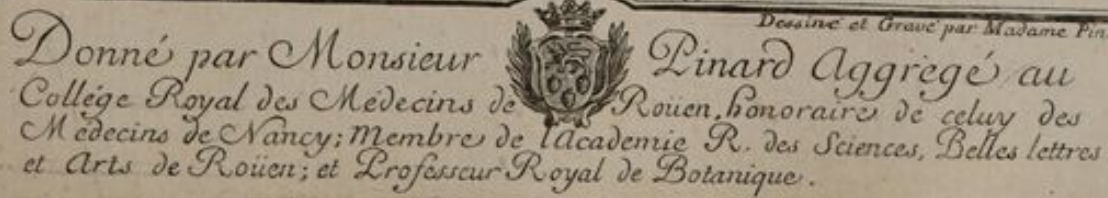 Dessiné et Gravé par Madame Pin
Donné par Monsieur Pinard Aggrégé au
Collége Royal des Médecins de Roüen, honoraire de celuy des
Médecins de Nancy; Membre de l'Academie R. des Sciences, Belles lettres
et Arts de Roüen; et Professeur Royal de Botanique.